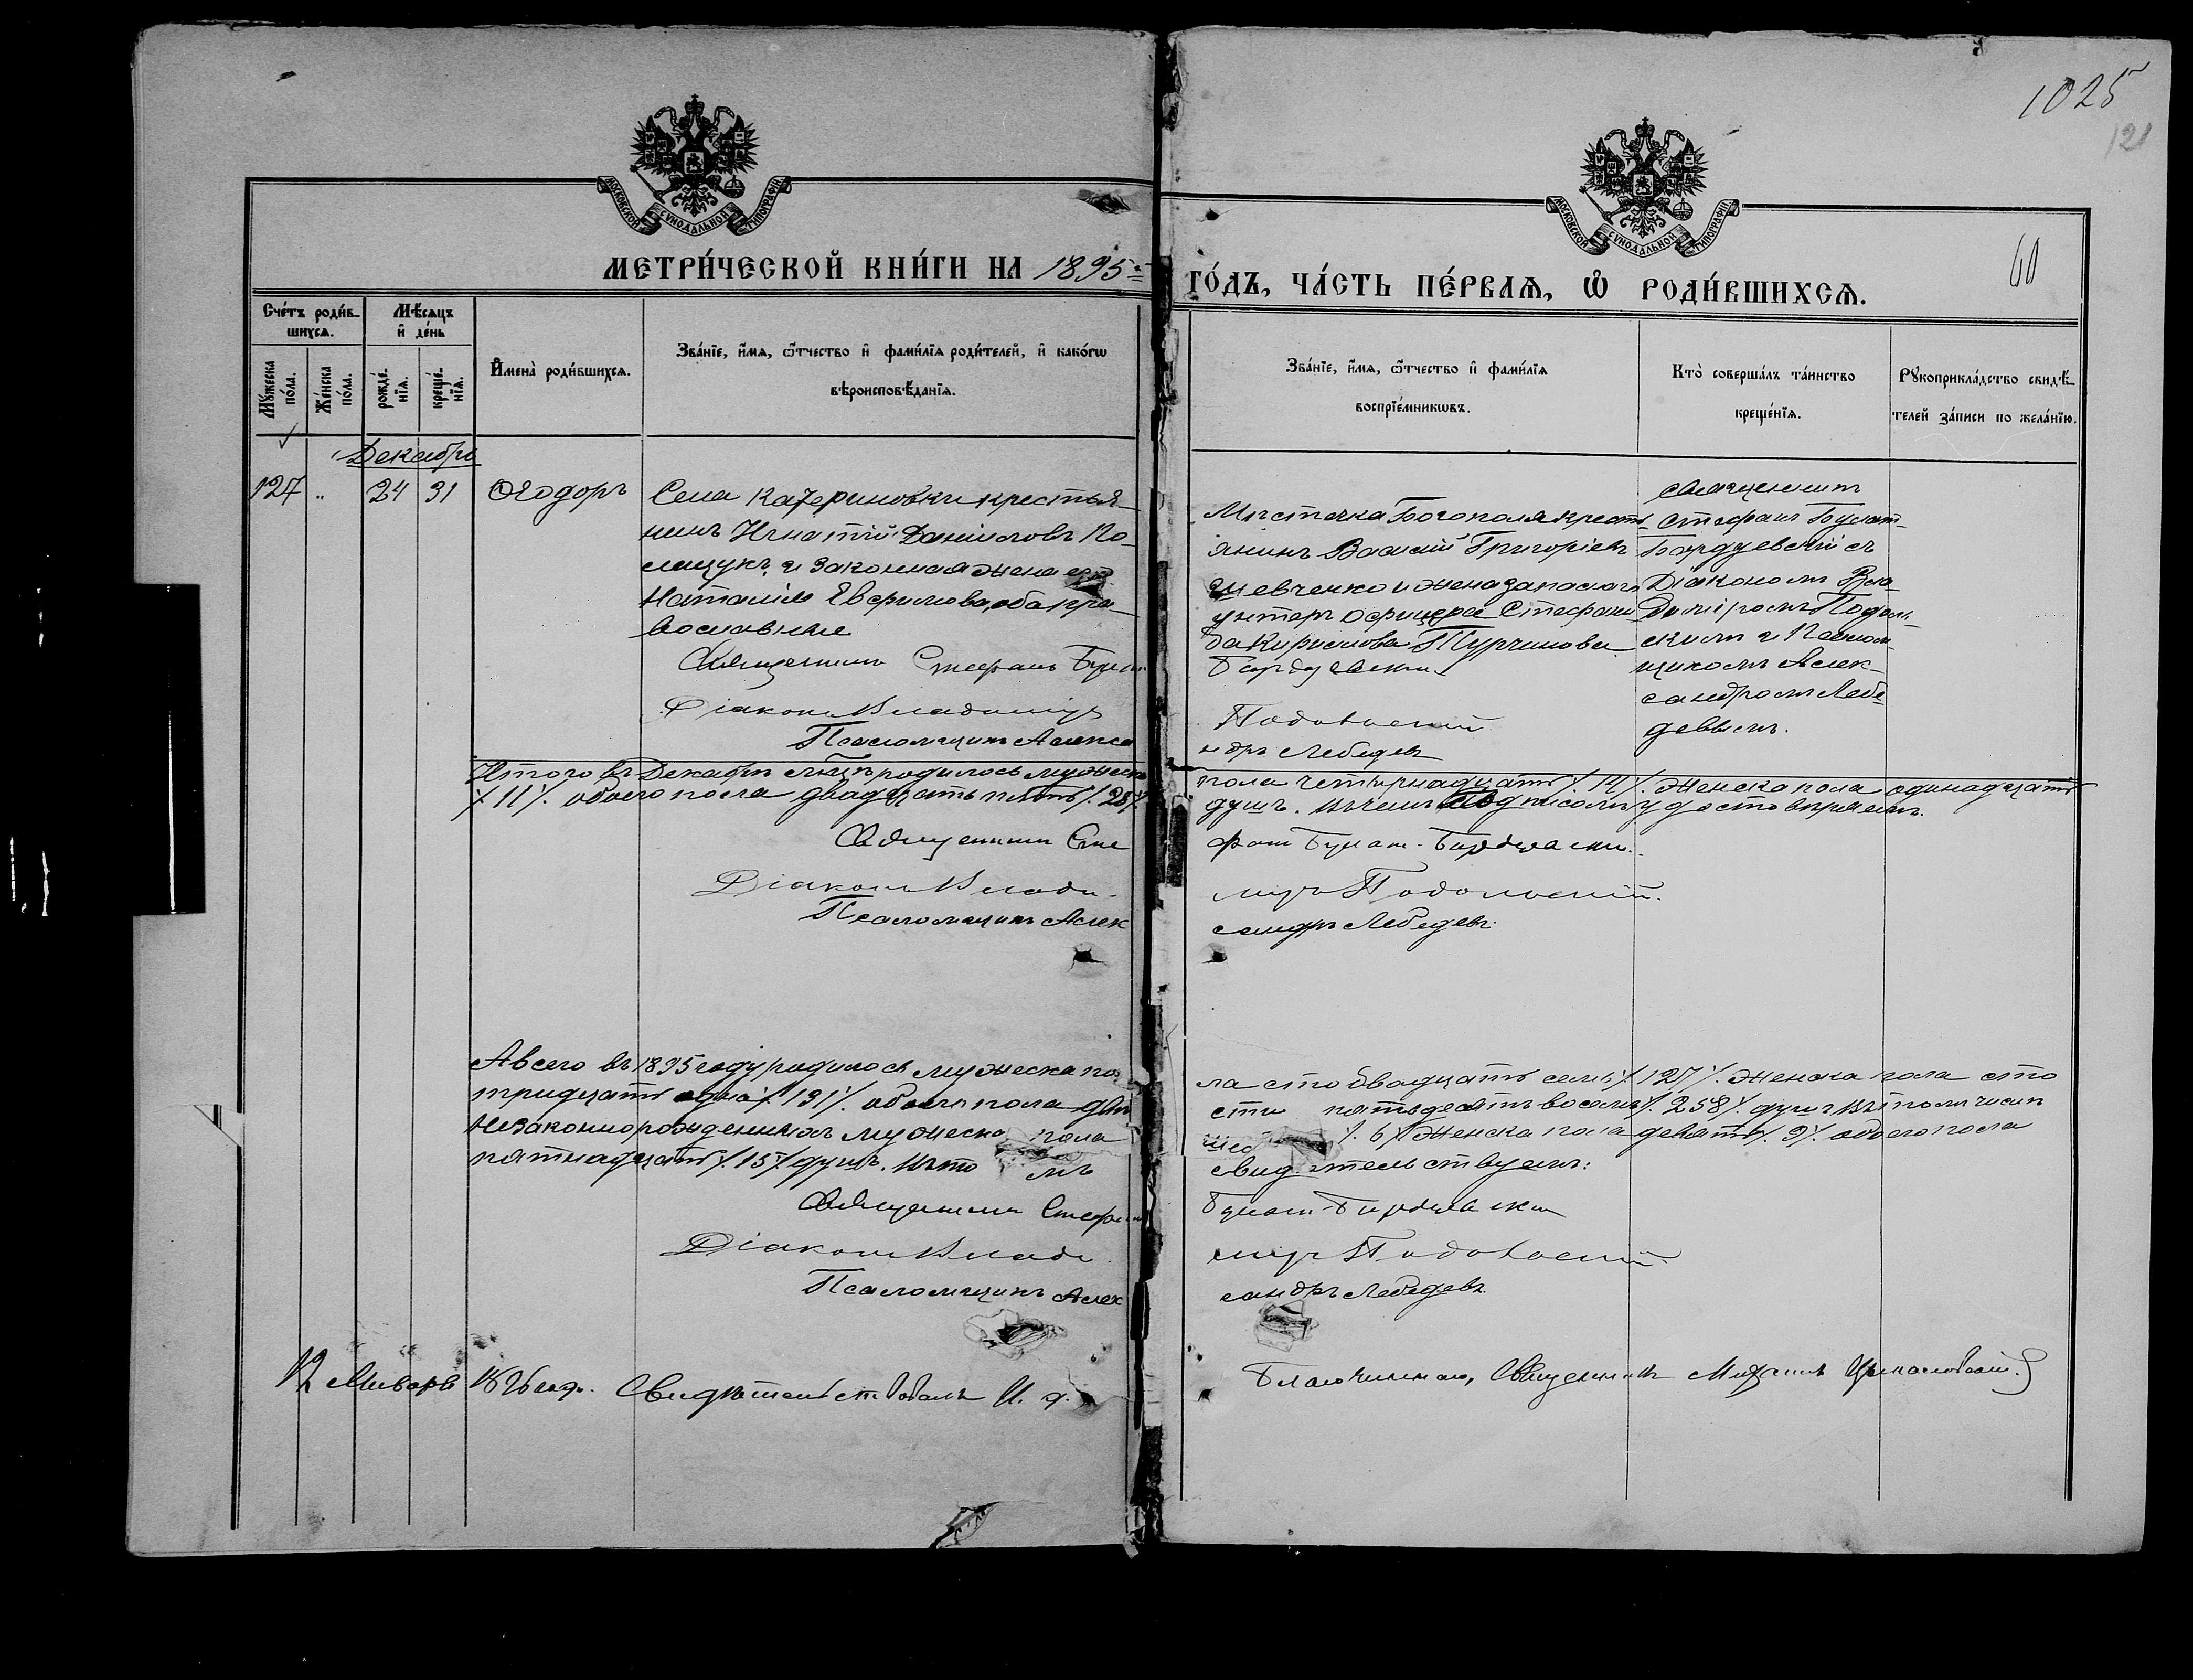 1025
121
60
МОСКОВСКОЙ СУНОДАЛЬНОЙ ТИПОГРАФІИ
МОСКОВСКОЙ СУНОДАЛЬНОЙ ТИПОГРАФІИ
МЕТРИ́ЧЕСКОЙ КНИ́ГИ НА 1895
ГО́ДЪ, ЧА́СТЬ ПЕ́РВАѦ, Ѽ РОДИ́ВШИХСѦ.
Сче́тъ роди́в-
шихсѧ.
Мꙋ́жеска по́ла.
Же́нска по́ла.
Мѣ́сѧцъ
и҆ де́нь
рожде́-
нїѧ.
креще́-
нїѧ.
И҆мена̀ роди́вшихсѧ.
Зва́нїе, и҆́мѧ, ѻ҆́тчество и҆ фами́лїѧ роди́телей, и҆ како́гѡ
вѣроисповѣ́данїѧ.
Зва́нїе, и҆́мѧ, ѻ҆́тчество и҆ фами́лїѧ
воспрїе́мникѡвъ.
Кто̀ соверша́лъ та́инство
креще́нїѧ.
Рꙋкоприкла́дство свидѣ́-
телей за́писи по жела́нїю.
Декабрь
127 " 24 31 Ѳеодоръ
Села Катериновки крестья-
нинъ Игнатій Даніиловъ По-
лищукъ и законная жена его
Наталія Евфимова, оба пра-
вославные
Священникъ Стефанъ Булат
Діаконъ Владиміръ
Псаломщикъ Алекса
Мѣстечка Богополя крест-
янинъ Василій Григоріевъ
Шевченко и жена запаснаго
унтеръ офицера Стефани-
да Кирилова Турчинова
Бордуевскій
Подольскій
ндръ Лебедевъ
Священникъ
Стефанъ Булат-
Бордуевскій съ
Діакономъ Вла-
диміромъ Подоль-
скимъ и Псалом-
щикомъ Алек-
сандромъ Лебе-
девымъ.
Итого въ Декабрѣ м-цѣ родилось мужеска
пола четырнадцать /. 14 /. Женска пола одинадцать
/. 11 /. обоего пола двадцать пять /. 25 /.
душъ. Въ чемъ подписомъ удостовѣряемъ.
Священникъ Сте
фанъ Булат-Бордуевскій.
Діаконъ Влади-
міръ Подольскій.
Псаломщикъ Алек
сандръ Лебедевъ.
А всего въ 1895 году родилось мужеска по
ла сто двадцать семь /. 127 /. Женска пола сто
тридцать одна /. 131 /. обоего пола двѣ
сти пятьдесять восемь /. 258 /. душъ въ томъ числѣ
Незаконнорожденныхъ мужеска пола
шес /. 6 /. Женска пола девять /. 9 /. обоего пола
пятнадцать /. 15 /. душъ. Въ то мъ
свидѣтельствуемъ:
Священникъ Стефанъ
Булат-Бордуевскій
Діаконъ Влади
міръ Подольскій
Псаломщикъ Алек
сандръ Лебедевъ.
12 Января 1896 года. Свидѣтельствовалъ И. д.
Благочиннаго, Священникъ Михаилъ